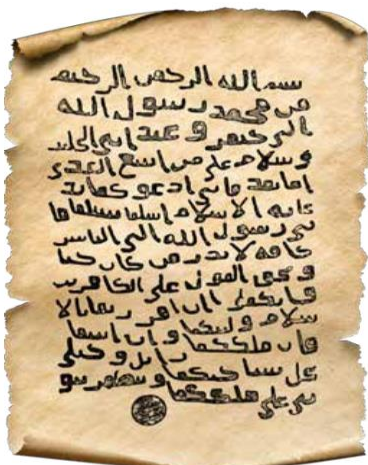 بسم الله الرحمن الرحيم
من محمد رسول الله
الي جيفر و عبد ابني الجلند
و سلام علي من اتبع الهدى
اما بعد فاني ادعوكما بد
عايه الاسلام اسلما تسلما فا
ني رسول الله الي الناس
كافه لانذر من كان حيا
و يحق القول علي الكافرين
فانكما ان اقررتما بالا
سلام وليتكما و ان ابيتما
فان ملككما زايل و خيلي
تحل بساحتكما و تظهر نبو
تي علي ملككما